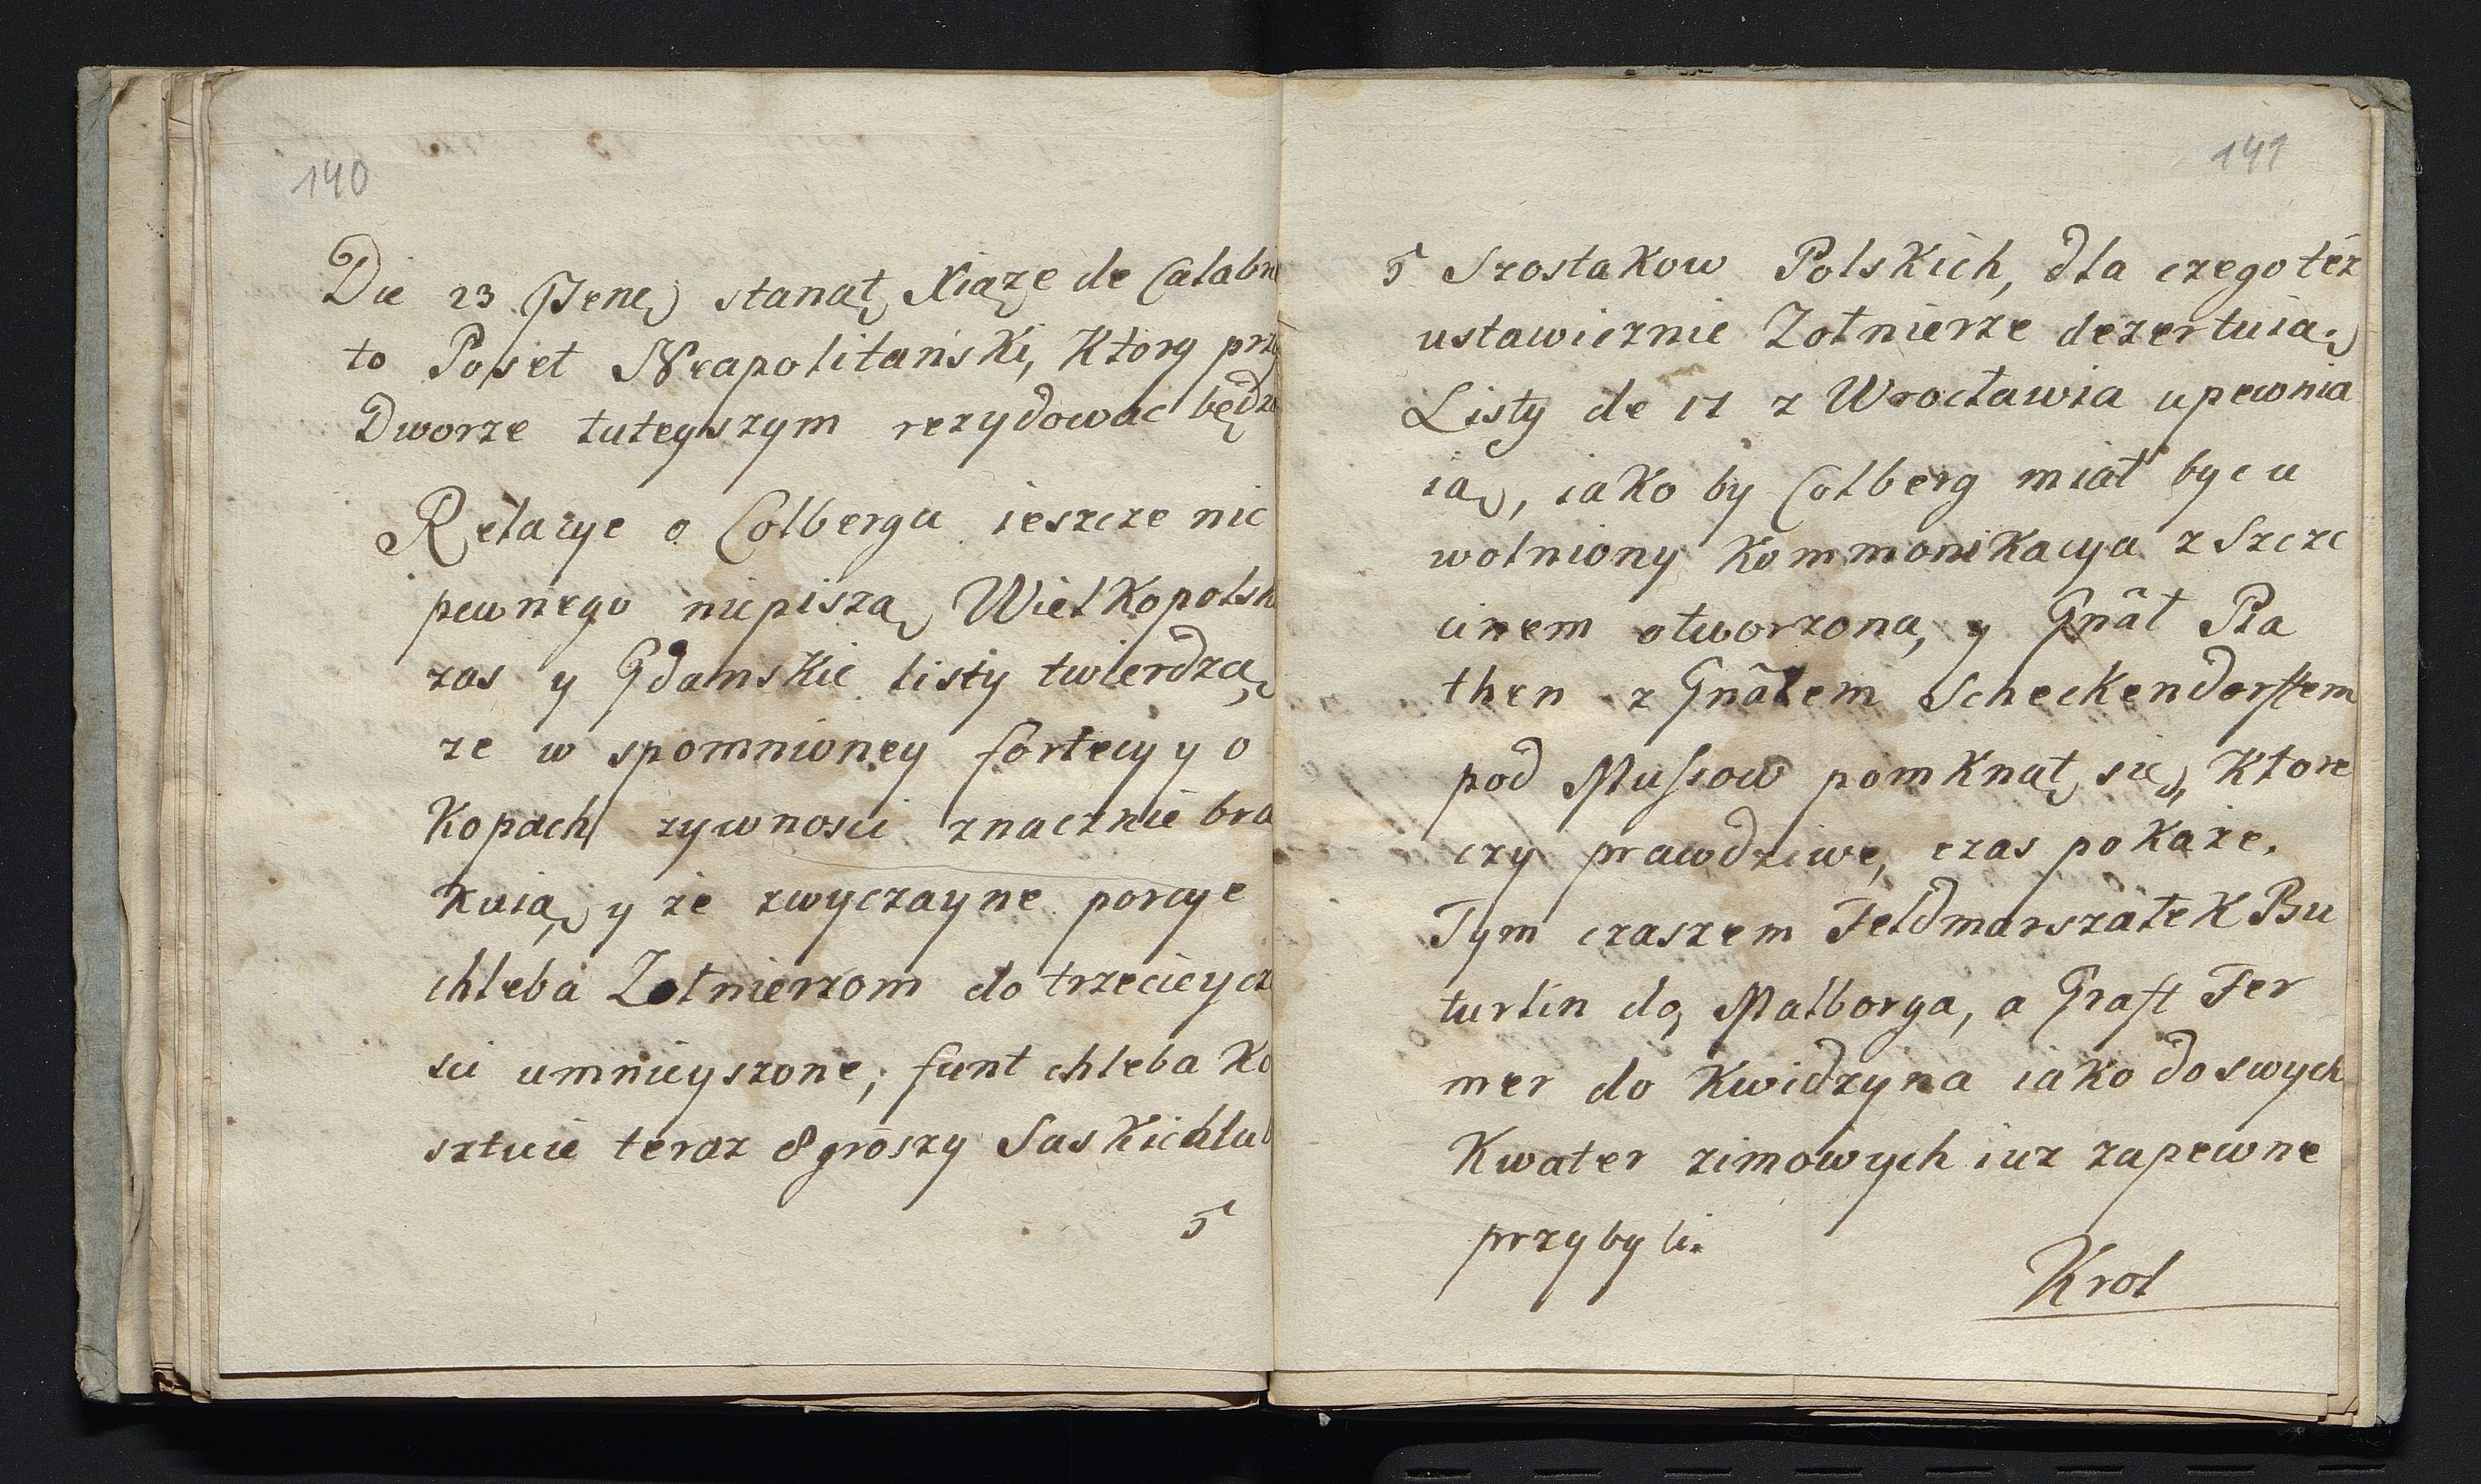 140
Die 23 Pene stanął Xiąze de Calabri
to Poseł Neapolitański, Ktory prz
Dworze tuteyszym rezydowac będz
Relacye o Colbergu ieszcze nic
pewnego niepiszą, Wielkopolsk
zas y Gdanskie listy twierdzą,
ze w spomnioney fortecy y o
Kopach zywnosci znacznie bra
Kuią, y że zwyczayne porcye
chleba Zołnierzom do trzeciey cz
sci umnieyszone, funt chleba Ko
sztuie teraz 8 groszy Saskich lub
5
141
5 Szostakow Polskich, dla czego też
ustawicznie Zołnierze dezertuią.
Listy de 17 z Wrocławia upewnia
ią, iako by Colberg miał byc u
wolniony Kommonikacya z Szcze
cinem otworzona, y Gnãł Pla
then z Gnãłem Scheckendorffem
pod Mussow pomknął się, Ktore
czy prawdziwe, czas pokaże.
Tym czaszem Feldmarszałek Bu
turlin do Malborga, a Graff Fer
mer do Kwidzyna iako do swych
Kwater zimowych iuz zapewne
przybyli.
Krol